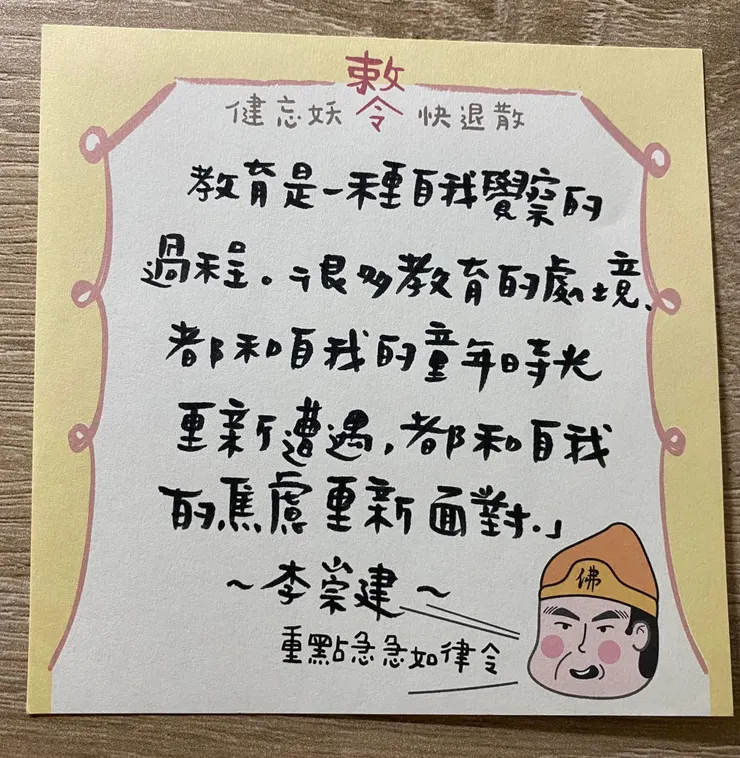 敕令
健忘妖 快退散
教育是一種自我覺察的
過程。很多教育的處境、
都和自我的童年時光
重新遭遇,都和自我
的焦慮重新面對.」
~李崇建~
佛
重點急急如律令